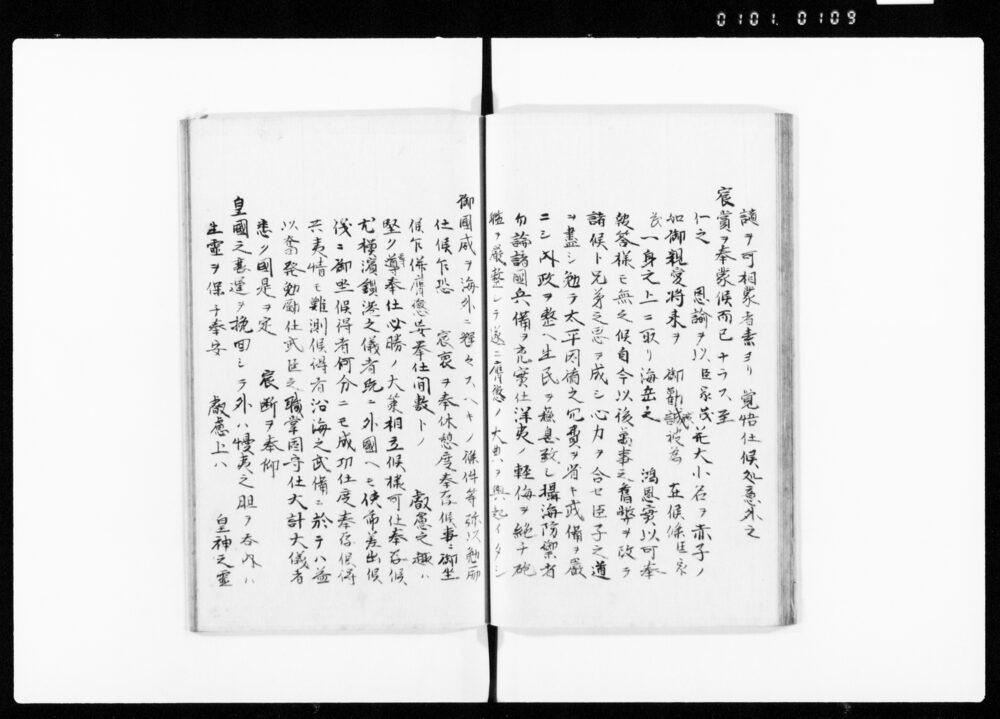 0101.0109
譴ヲ可相蒙者素ヨリ覚悟仕候処意外之
宸賞ヲ奉蒙候而已ナラス至
仁之　恩諭ヲ以臣家茂并大小名ヲ赤子ノ
如御親愛将来ヲ　御勧誡被為　在候条臣家
茂一身之上ニ取リ海岳之　鴻恩実以可奉
報答様モ無之候自今以後万事之旧弊ヲ改テ
諸候ト兄弟之思ヲ成シ心力ヲ合セ臣子之道
ヲ尽シ勉テ太平因循之冗費ヲ省キ武備ヲ厳
ニシ内政ヲ整ヘ生民ヲ蘇息致シ摂海防禦者
勿論諸国兵備ヲ充実仕洋夷ノ軽侮ヲ絶チ砲
艦ヲ厳整シテ遂ニ膺懲ノ大典ヲ興起イタシ
御国威ヲ海外ニ輝々スヘキノ条件等弥以勉励
仕候乍恐　宸衷ヲ奉休憩度奉存候事ニ御坐
候乍併膺懲妄挙仕間敷トノ　叡慮之趣ハ
堅ク遵奉仕必勝ノ大策相立候様可仕奉存候
尤横濱鎖港之儀者既ニ外国ヘモ使節差出候
儀ニ御坐候得者何分ニモ成功仕度奉存候得
共夷情モ難測候得者沿海之武備ニ於テハ益
以奮発勉励仕武臣之職掌固守仕大計大儀者
悉ク国是ヲ定　宸断ヲ奉仰
皇国之衰運ヲ挽回シテ外ハ慢夷之胆ヲ呑内ハ
生霊ヲ保チ奉安　叡慮上ハ　皇神之霊